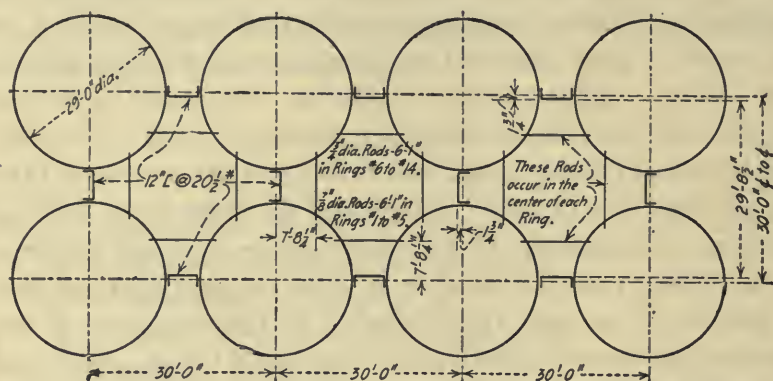 29'-0" dia.
1 3/4"
3/4" dia. Rods-6'-1"
in Rings #6 to #14.
12" [ @ 20 1/2 #
7/8" dia. Rods-6'-1" in
Rings #1 to #5.
These Rods
occur in the
center of each
Ring.
7'-8 1/4"
7'-8 1/4"
1 3/4"
29'-8 1/2"
30'-0" ¢ to ¢
30'-0"
30'-0"
30'-0"